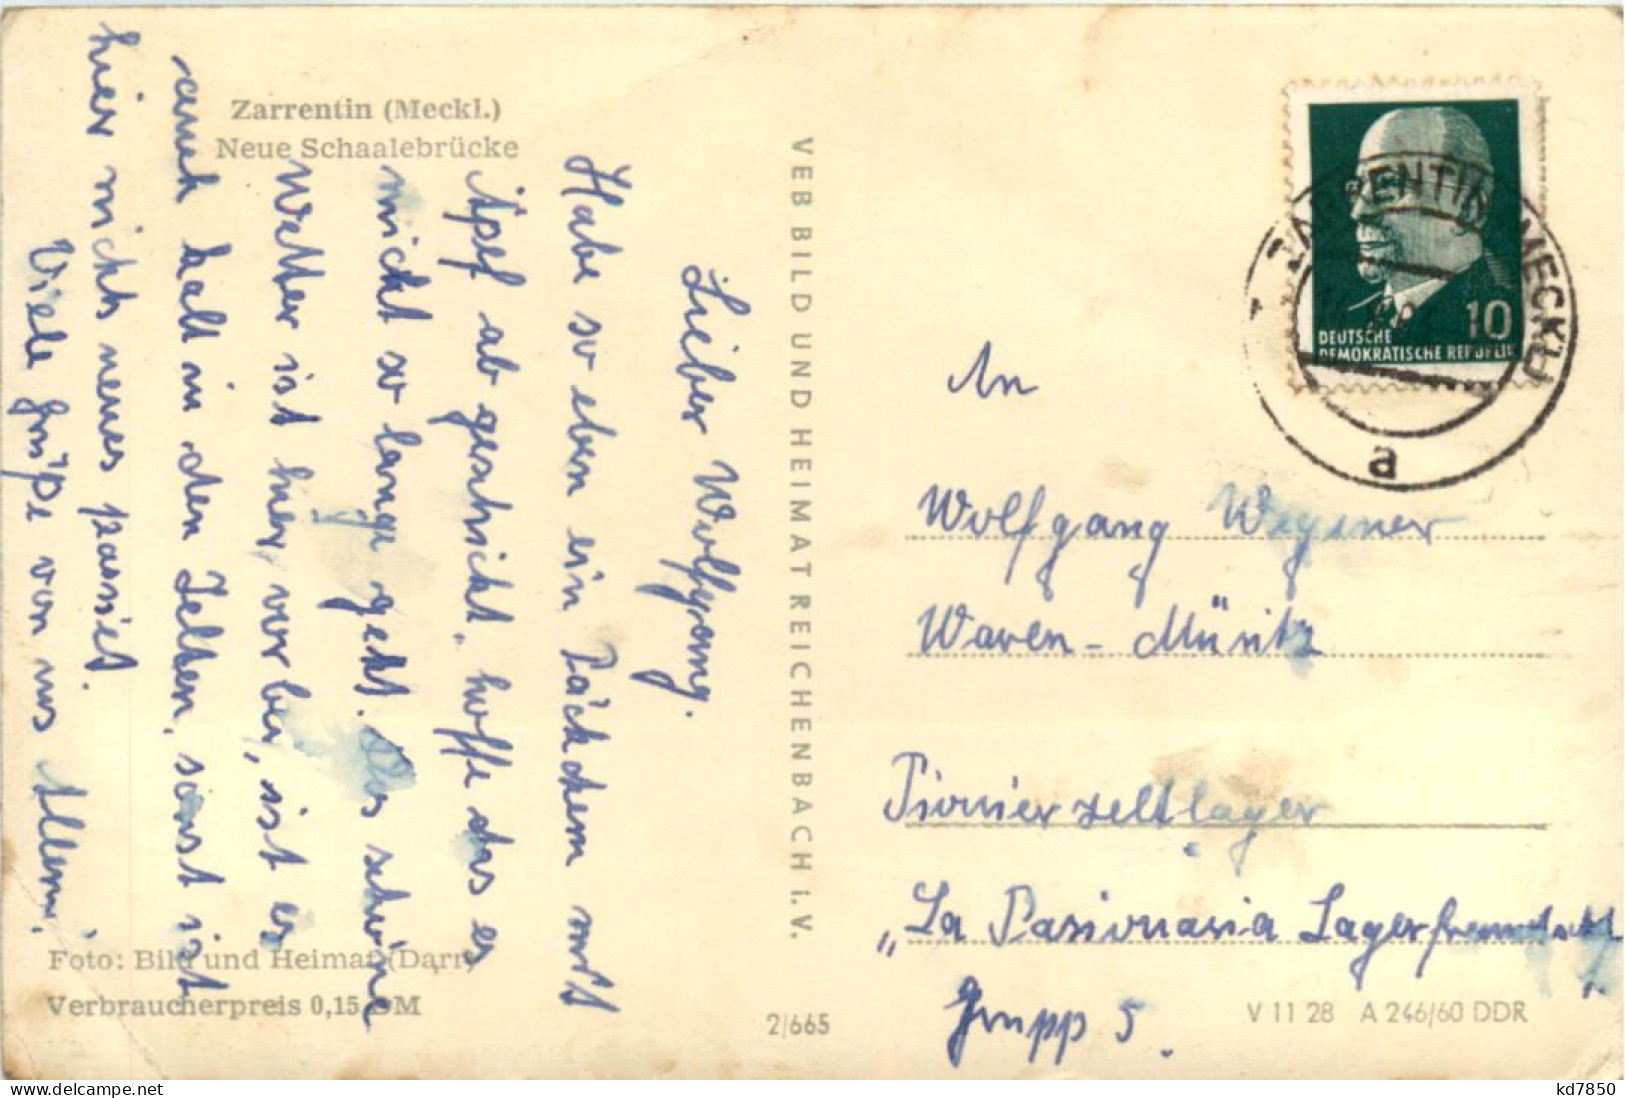 Zarrentin (Meckl.)
Neue Schaalebrücke
Lieber Wolfgang.
Habe so eben ein Päckchem mit
Äpfel ab geschickt, hoffe das es
nicht so lange geht. Das schöne
Wetter ist hier, vorbei, ist es
auch kalt in den Zelten, sonst ist
hier nichts neues passiet.
Viele Grüße von uns Allen.
Foto: Bild und Heimat (Darr)
Verbraucherpreis 0,15 DM
VEB BILD UND HEIMAT REICHENBACH I. V.
2/665
DEUTSCHE
DEMOKRATISCHE REPUBLIK
10
ZARRENTIN (MECKL)
a
An
Wolfgang Wegener
Waren - Müritz
Pionierzeltlager
„La Pasionaria Lagerfreundschaft
Grupp 5.
V 11 28 A 246/60 DDR
kd7850
www.delcampe.net